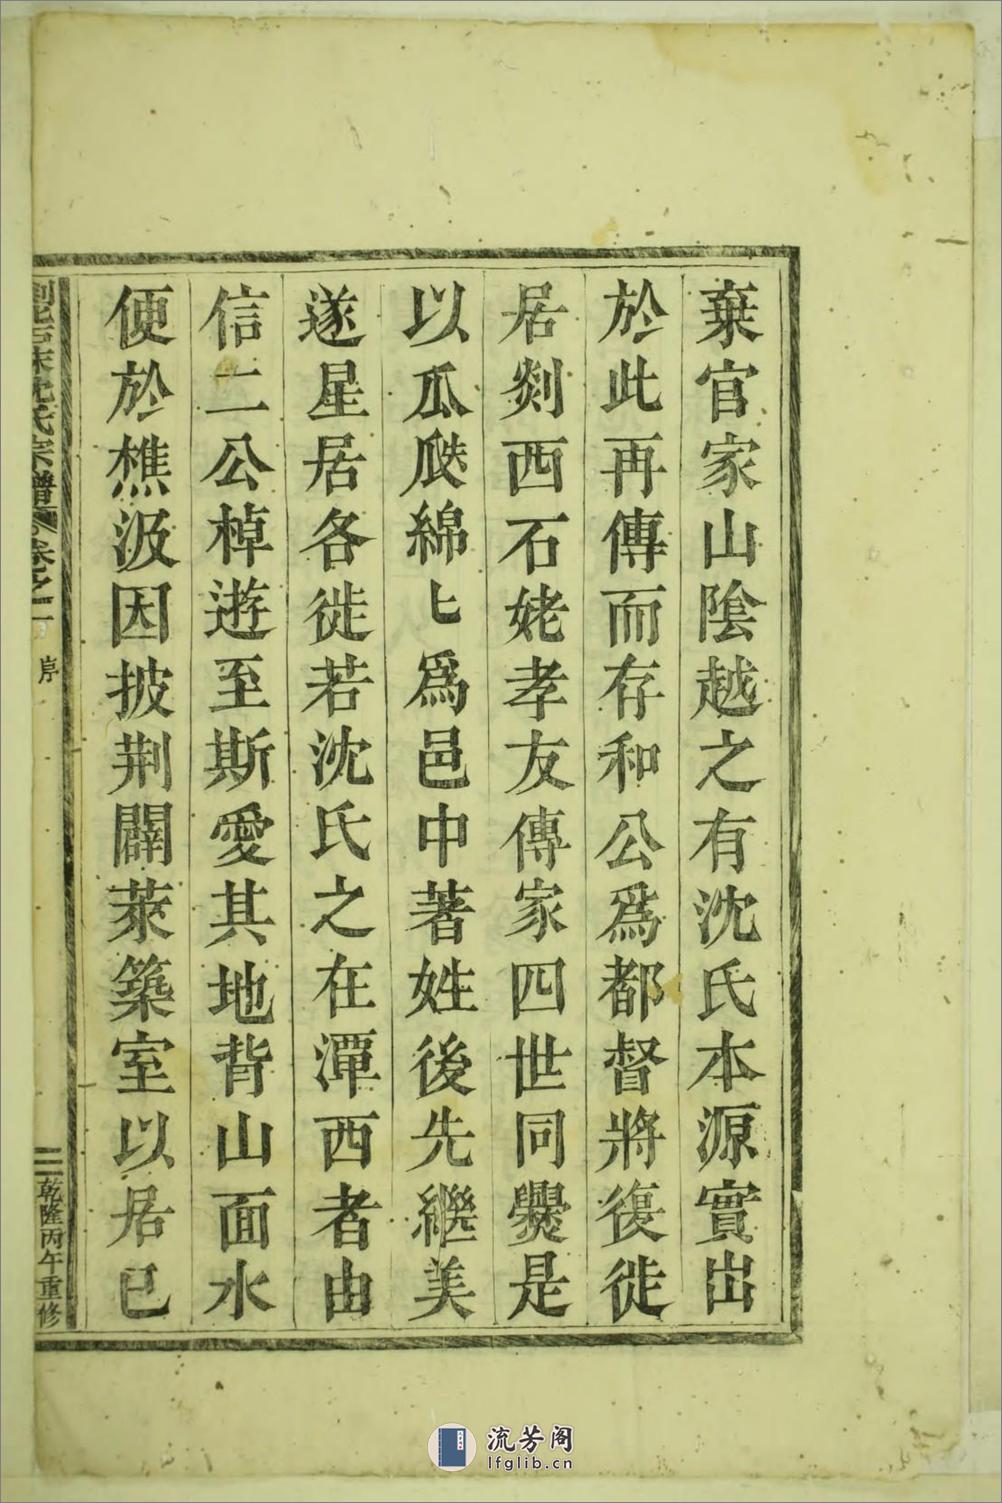 棄官家山陰越之有沈氏本源實出
於此再傳而存和公爲都督將復徙
居剡西石姥孝友傳家四世同爨是
以瓜瓞綿匕爲邑中著姓後先繼美
遂星居各徙若沈氏之在潭西者由
信二公棹遊至斯愛其地背山面水
便於樵汲因披荆闢萊築室以居已
沈氏宗譜
卷之一
序
二
乾隆丙午重修
流芳阁
lfglib.cn